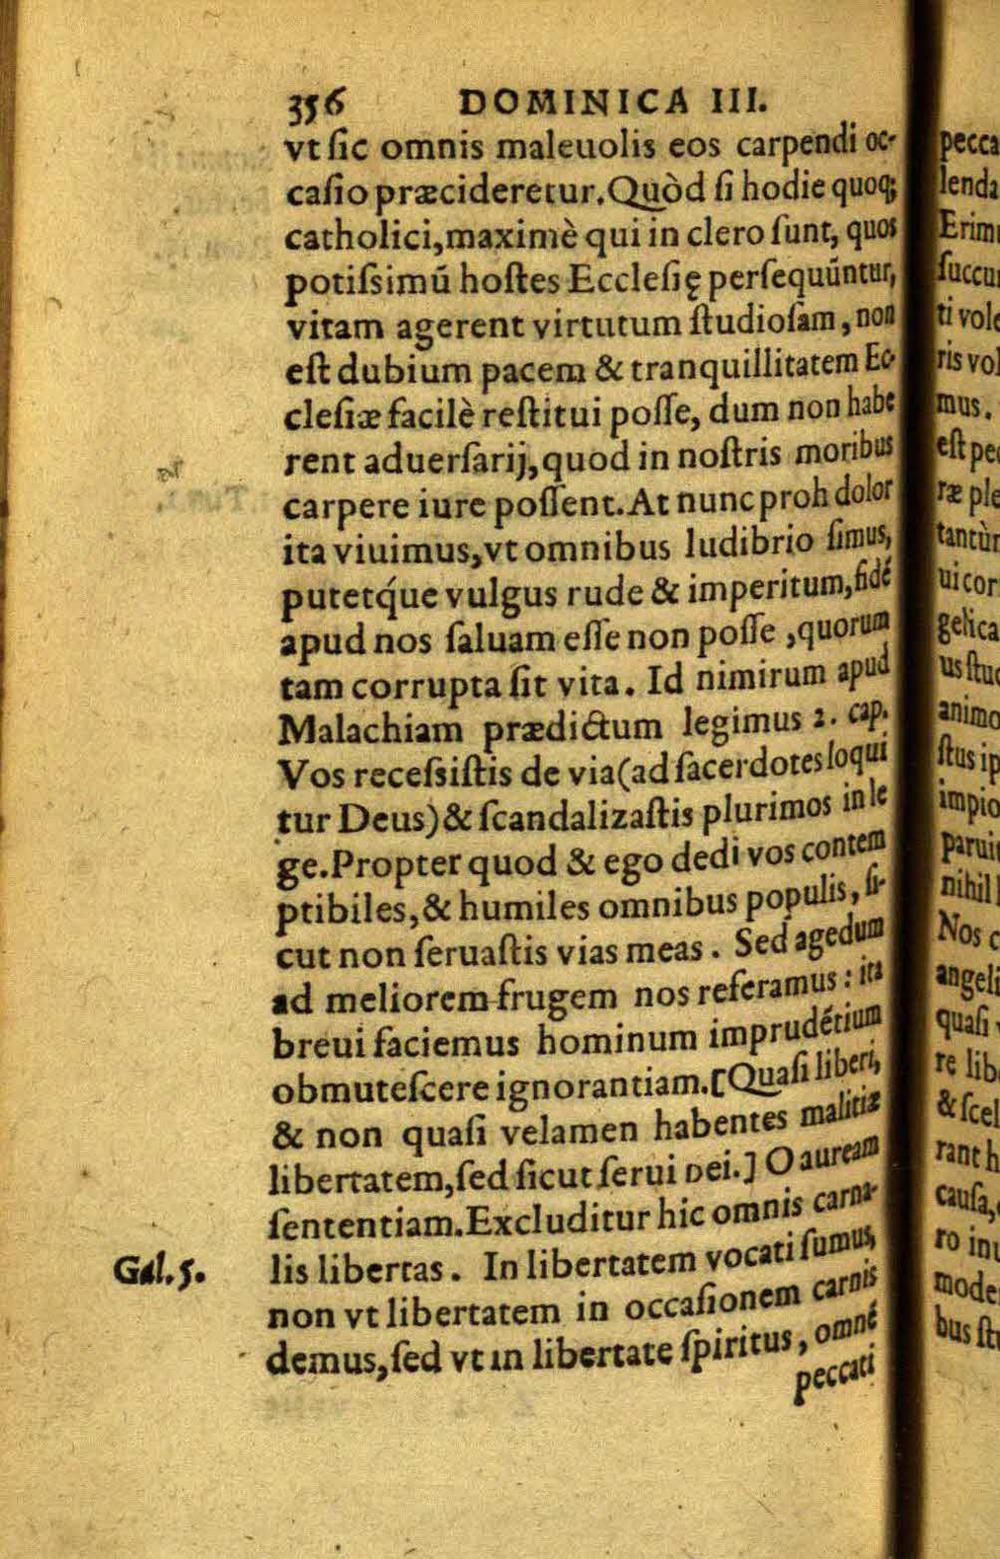 356 DOMINICA III.
vt ſic omnis maleuolis eos carpendi oc-
caſio præcideretur. Quòd ſi hodie quoq;
catholici, maximè qui in clero ſunt, quos
potiſsimū hoſtes Eccleſię perſequūntur,
vitam agerent virtutum ſtudioſam, non
eſt dubium pacem & tranquillitatem Ec-
cleſiæ facilè reſtitui poſſe, dum non habe
rent aduerſarij, quod in noſtris moribus
carpere iure poſſent. At nunc proh dolor
ita viuimus, vt omnibus ludibrio ſimus,
putetq́ue vulgus rude & imperitum, fidé
apud nos ſaluam eſſe non poſſe, quorum
tam corrupta ſit vita. Id nimirum apud
Malachiam prædictum legimus 2. cap.
Vos receſsiſtis de via (ad ſacerdotes loqui
tur Deus) & ſcandalizaſtis plurimos in le
ge. Propter quod & ego dedi vos contem
ptibiles, & humiles omnibus populis, ſi-
cut non ſeruaſtis vias meas. Sed agedum
ad meliorem frugem nos referamus: ita
breui faciemus hominum imprudétium
obmuteſcere ignorantiam. [Quaſi liberi,
& non quaſi velamen habentes malitiæ
libertatem, ſed ſicut ſerui Dei.] O auream
ſententiam. Excluditur hic omnis carna-
Gal. 5.
lis libertas. In libertatem vocati ſumus,
non vt libertatem in occaſionem carnis
demus, ſed vt in libertate ſpiritus, omné
peccati
pecca
lenda
Erim
ſuccu
ti vole
ris vol
mus.
eſt pe
ræ ple
tantùr
ui cor
gelica
us ſtu
animo
ſtus ip
impio
paruit
nihil
Nos c
angeli
quaſi
re lib
& ſcel
rant h
cauſa,
ro in
mode
bus ſt